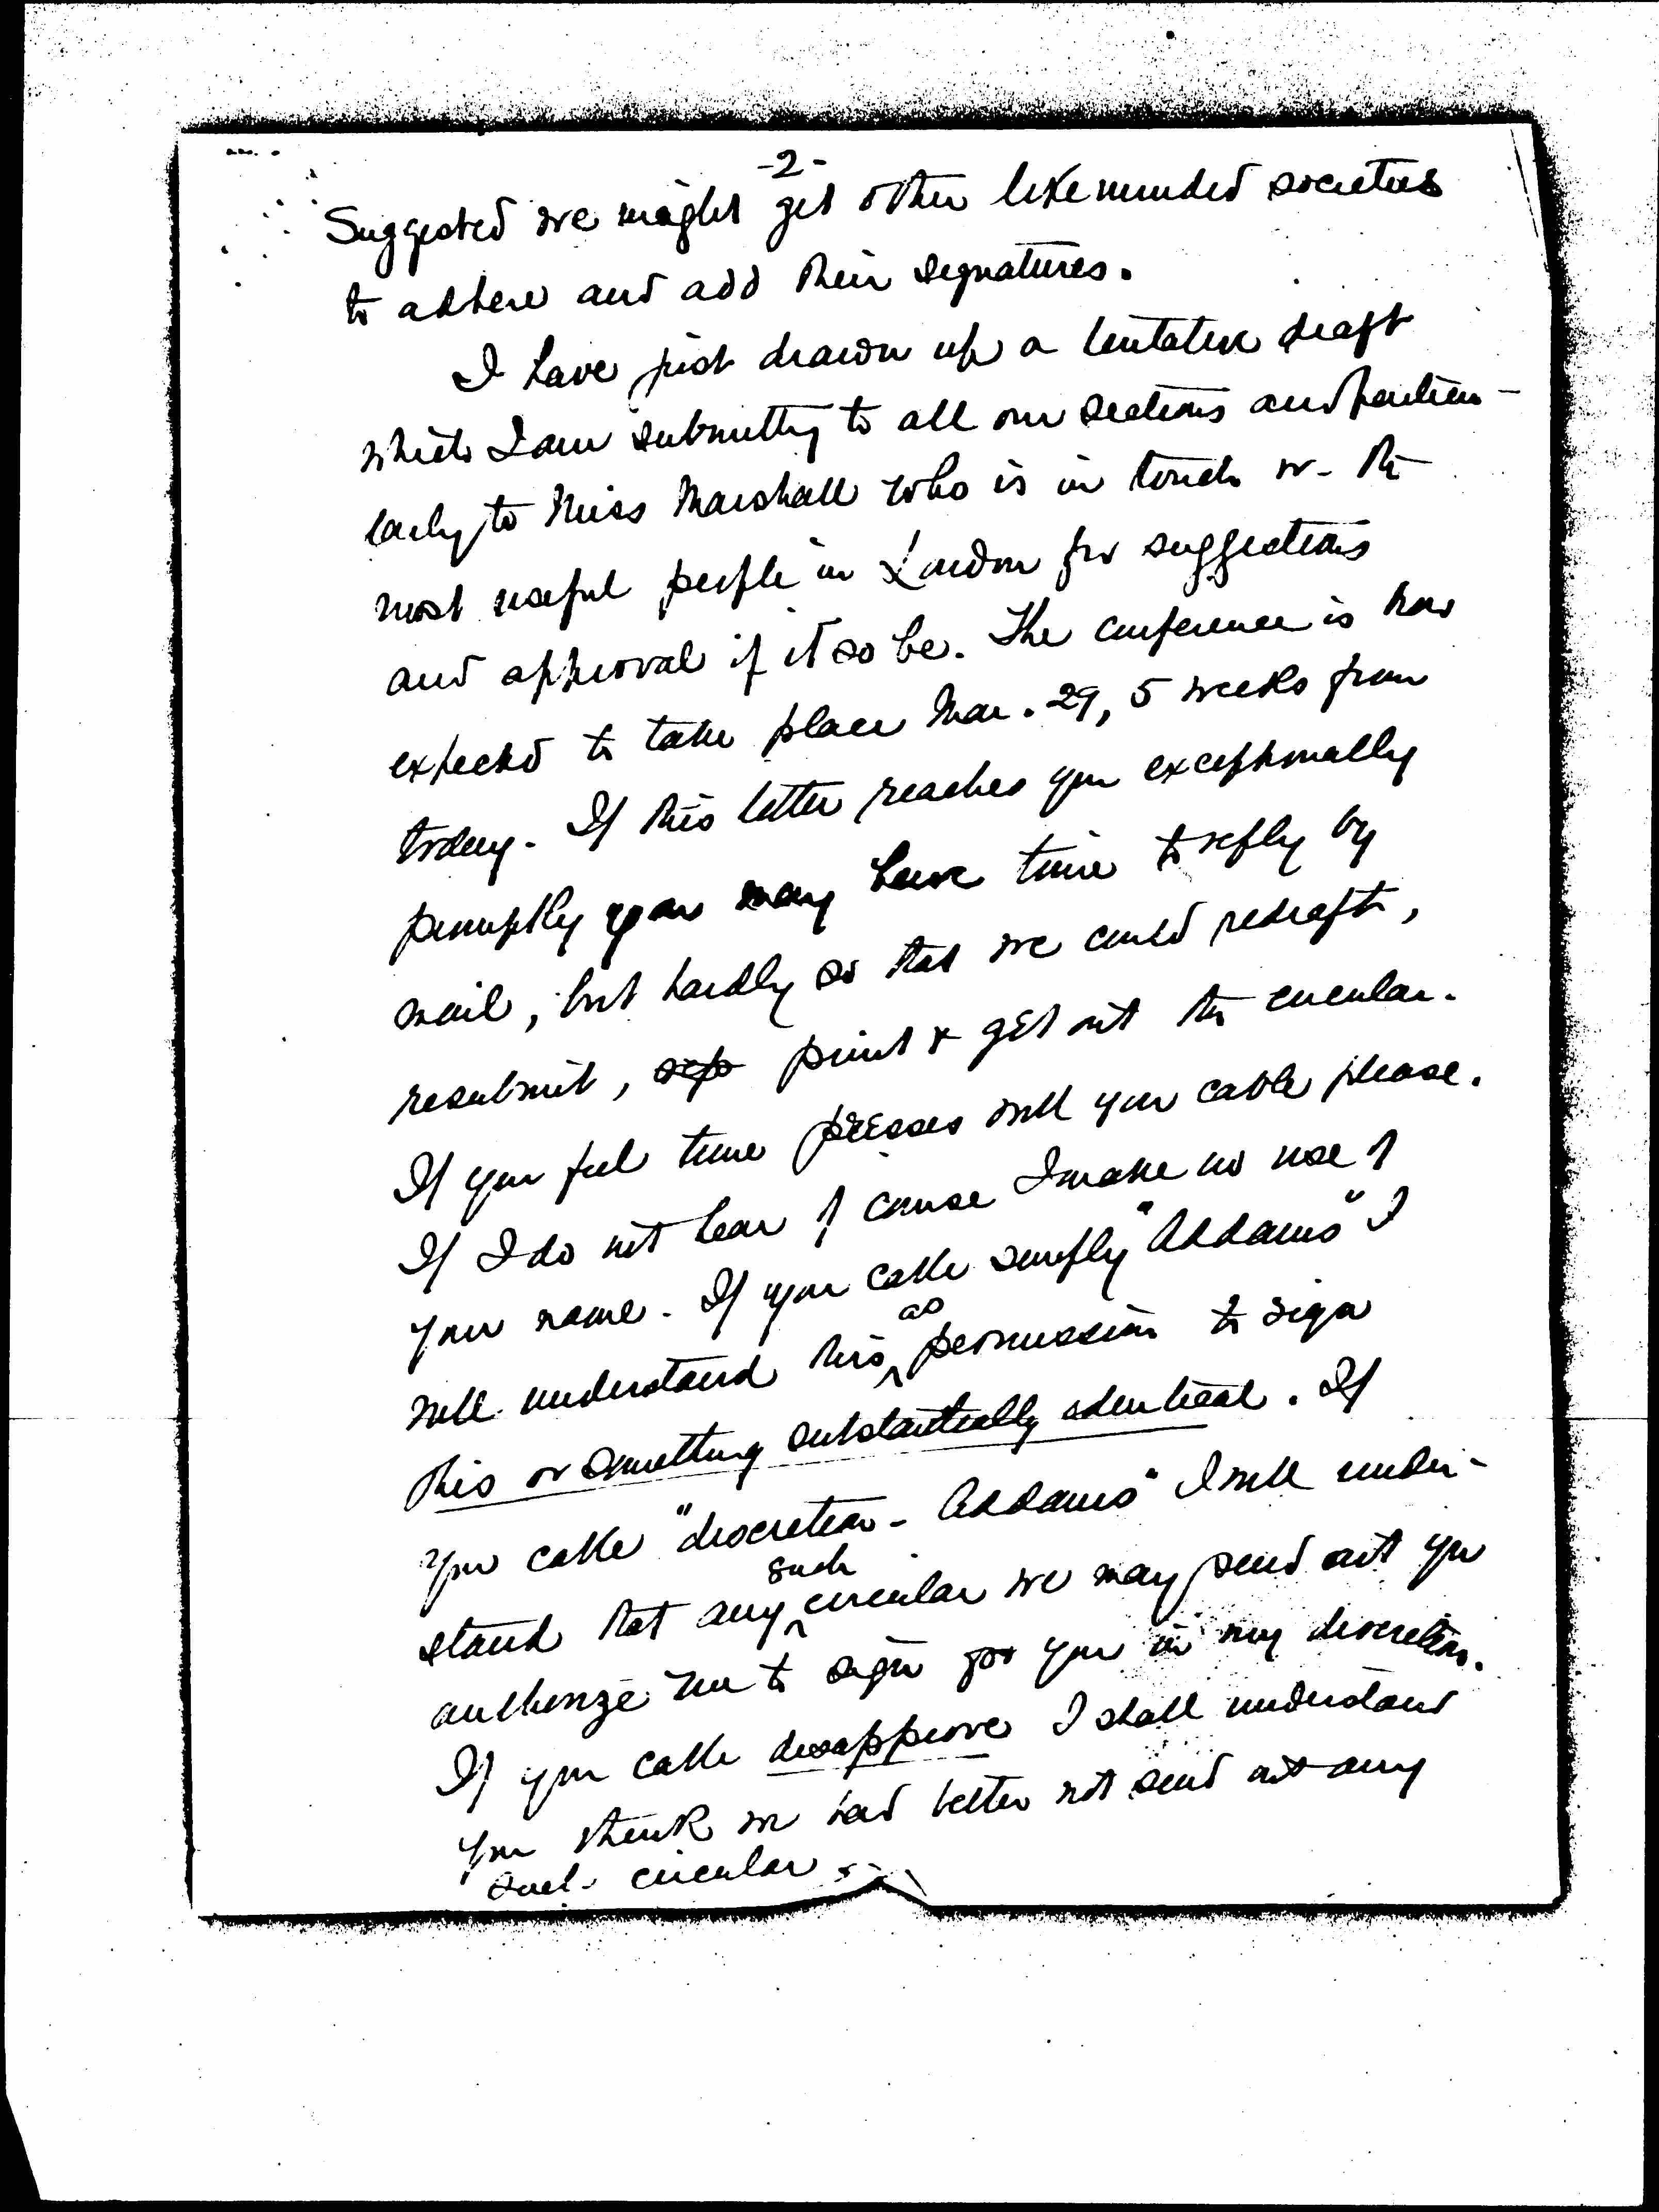 -2-
Suggested we might get other likeminded societies
to adhere and add their signatures.
I have just drawn up a tentative draft
which I am submitting to all our sections and particu-
larly to Miss Marshall who is in touch w. the
most useful people in London for suggestions
and approval if it so be. The conference is now
expected to take place Mar. 29, 5 weeks from
today. If this letter reaches you exceptionally
promptly you may have time to reply by
mail, but hardly so that we could redraft,
resubmit, print & get out the circular.
If you feel time presses will you cable please.
If I do not hear of course I make no use of
your name. If you cable simply "Addams" I
will understand this as permission to sign
this or something substantially identical. If
you cable "discretion - Addams" I will under-
stand that any such circular we may send out you
authorize me to sign for you in my discretion.
If you cable disapprove I shall understand
you think we had better not send out any
such circular.